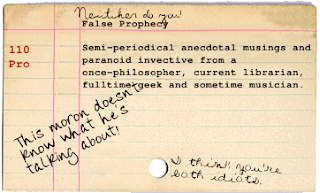 Neither do you!
False Prophecy
110
Pro
Semi-periodical anecdotal musings and
paranoid invective from a
once-philosopher, current librarian,
fulltime geek and sometime musician.
This moron doesn't
know what he's
talking about!
I think you're
both idiots.